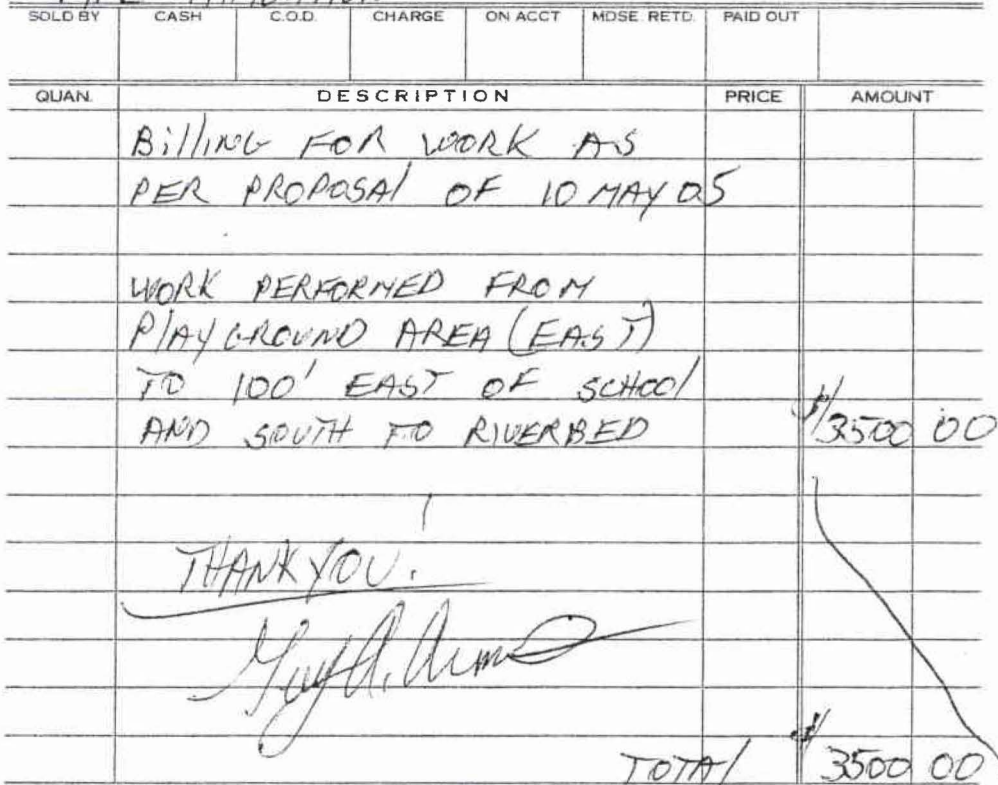 SOLD BY CASH C.O.D. CHARGE ON ACCT MDSE. RETD. PAID OUT
QUAN. DESCRIPTION PRICE AMOUNT
BillING FOR WORK AS
PER PROPOSAl OF 10 MAY 05
WORK PERFORMED FROM
PlAYGROUND AREA (EAST)
TO 100' EAST OF SCHOOl
AND SOUTH TO RIVERBED $3500 00
THANK YOU!
TOTAl $3500 00